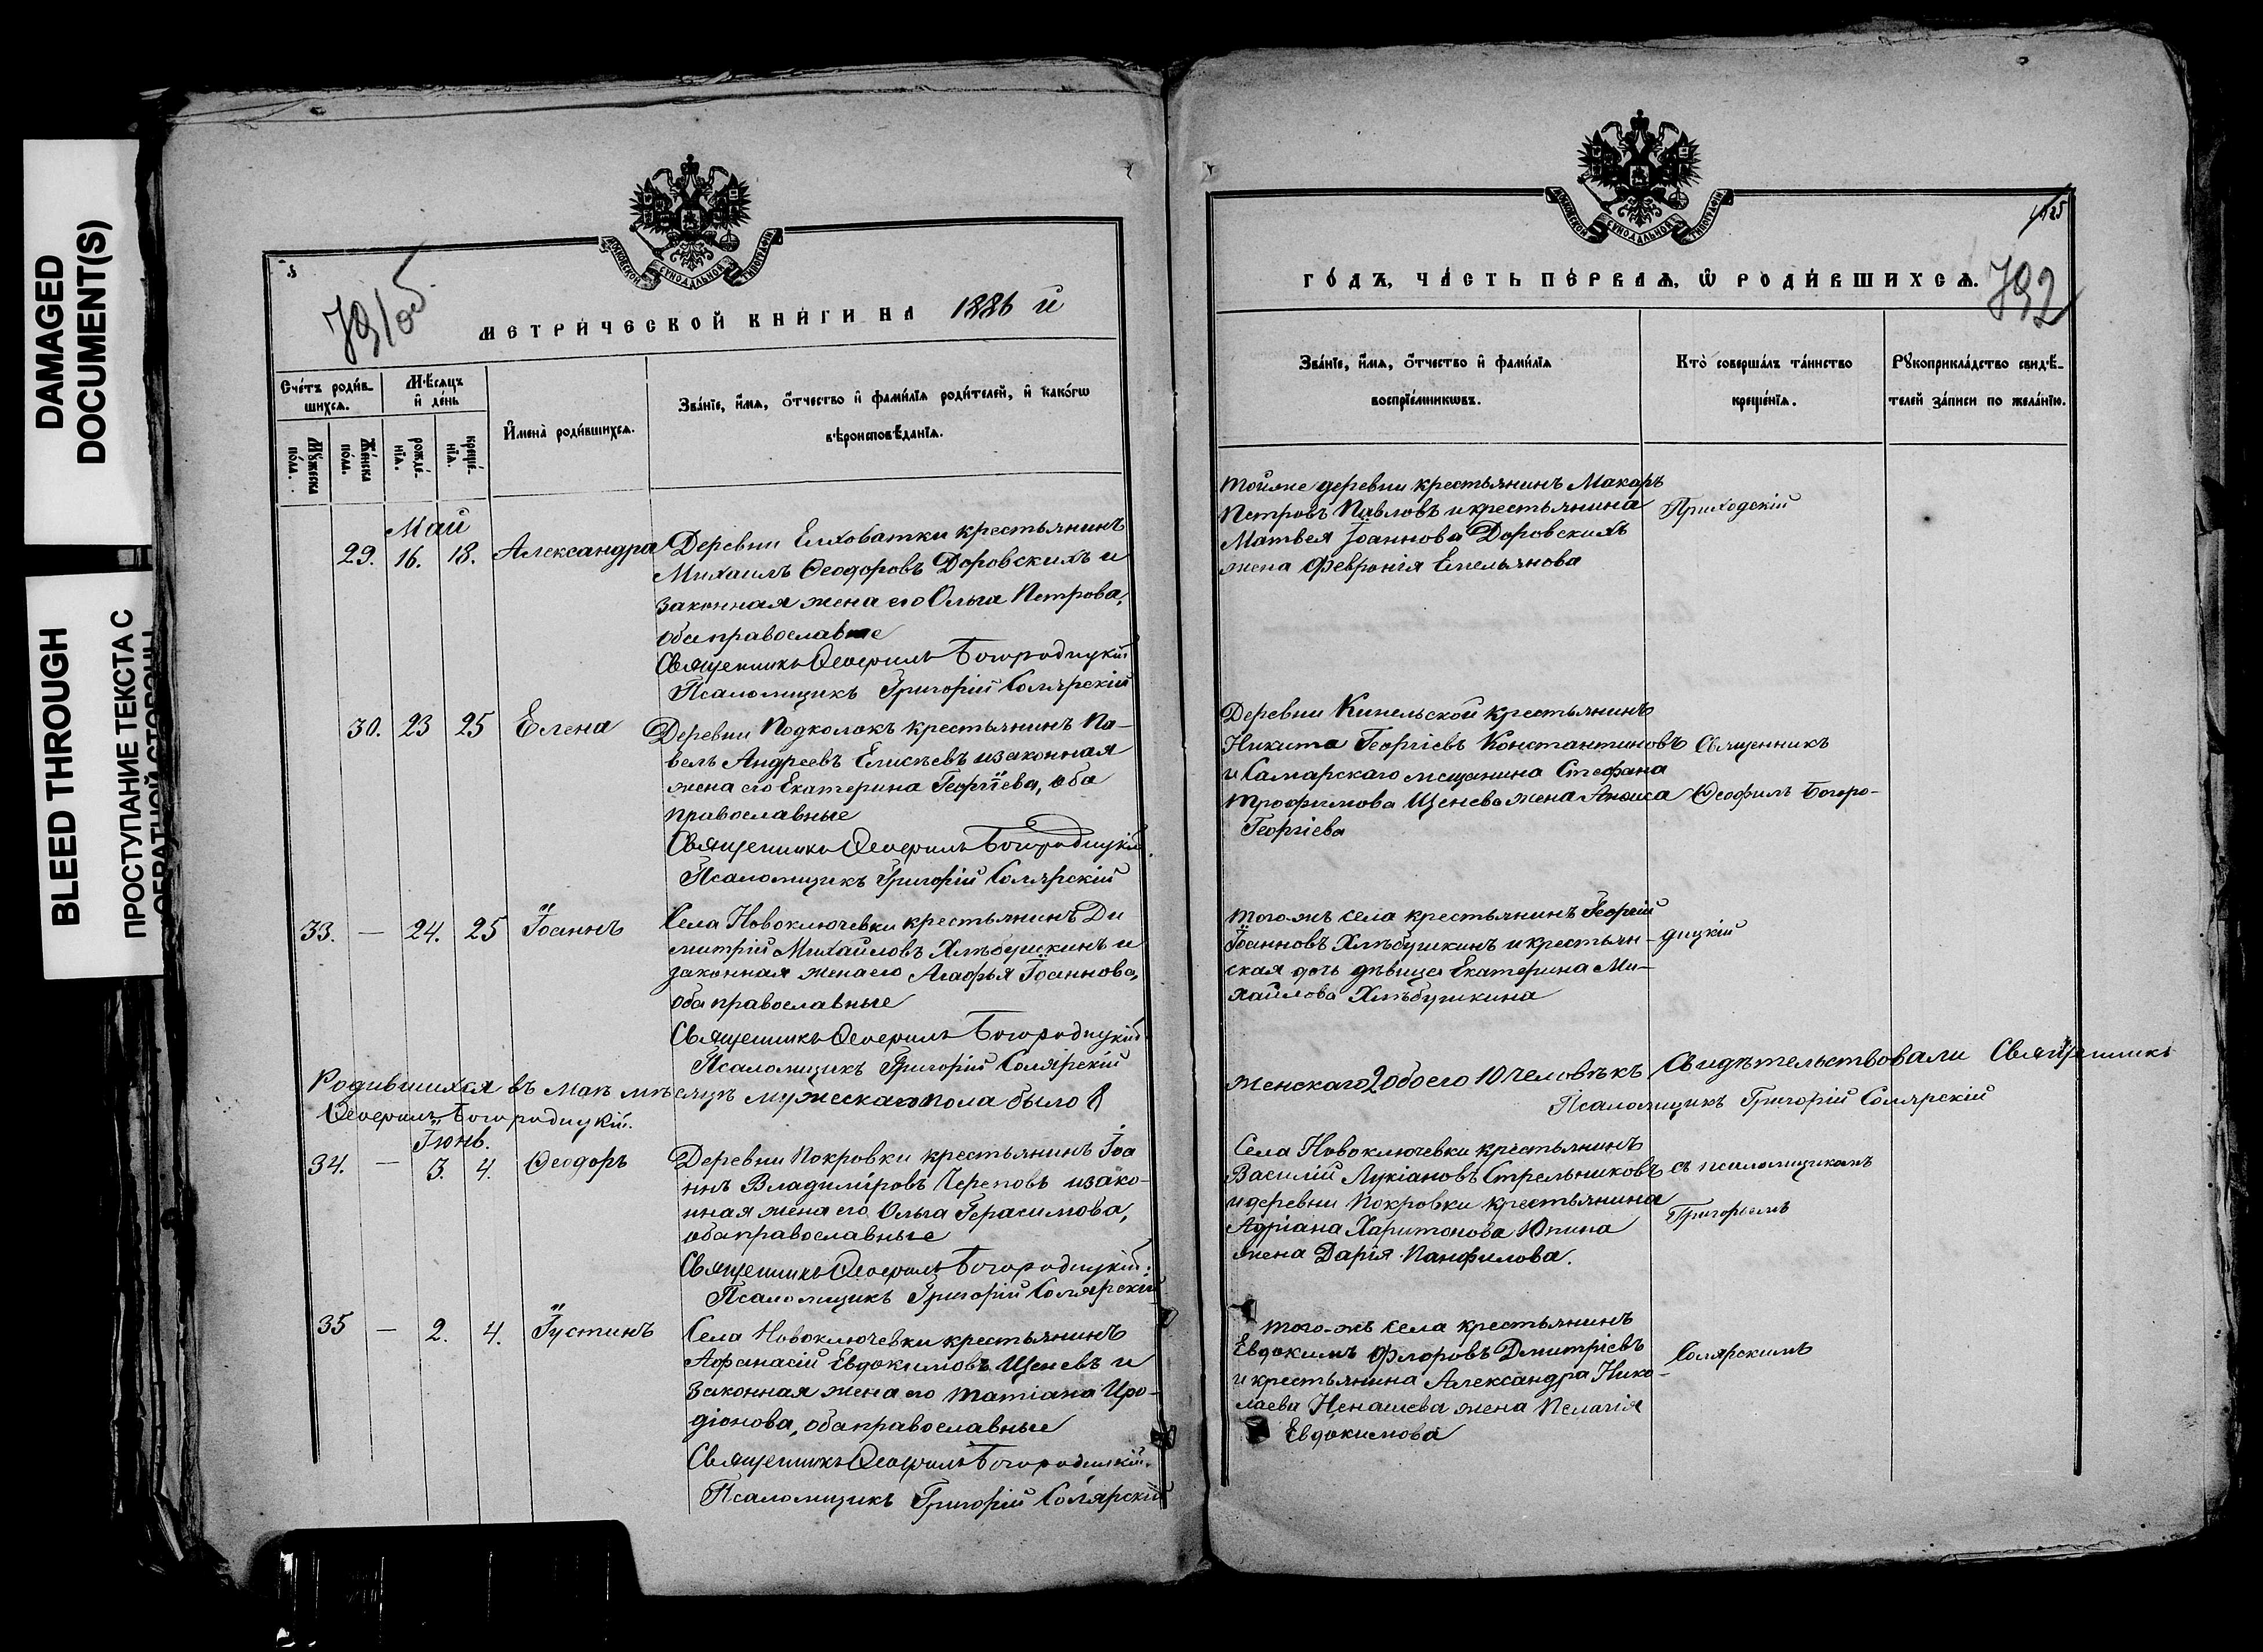 DAMAGED
DOCUMENT(S)
BLEED THROUGH
ПРОСТУПАНИЕ ТЕКСТА С
ОБРАТНОЙ СТОРОНЫ
МОСКОВСКОЙ СѴНОДАЛЬНОЙ ТИПОГРАФІИ
791об
МЕТРИ́ЧЕСКОЙ КНИ́ГИ НА 1886 й
Сче́тъ роди́в-
шихсѧ.
Мѣ́сѧцъ
и҆ день
И҆мена̀ роди́вшихсѧ.
Зва́нїе, и҆́мѧ, ѻ҆́тчество и҆ фами́лїѧ роди́телей, и҆ како́гѡ
вѣроисповѣ́данїѧ.
Мꙋ́жеска
по́ла.
Же́нска
по́ла.
рожде́-
нїѧ.
креще́-
нїѧ.
Май
29. 16. 18. Александра
Деревни Елховатки крестьянинъ
Михаилъ Ѳеодоровъ Доровскихъ и
законная жена его Ольга Петрова,
оба православные
Священникъ Ѳеофилъ Богородицкій
Псаломщикъ Григорій Солярскій
30. 23 25 Елена
Деревни Подколокъ крестьянинъ Па-
велъ Андреевъ Елисѣевъ и законная
жена его Екатерина Георгіева, оба
православные
Священникъ Ѳеофилъ Богородицкій
Псаломщикъ Григорій Солярскій
33. — 24. 25 Іоаннъ
Села Новоключевки крестьянинъ Ди
митрій Михайловъ Хлѣбушкинъ и
законная жена его Агафья Іоаннова,
оба православные
Священникъ Ѳеофилъ Богородицкій
Псаломщикъ Григорій Солярскій
Родившихся въ маѣ мѣсяцѣ мужескаго пола было 8
Ѳеофилъ Богородицкій.
Іюнь.
34. — 3. 4. Ѳеодоръ
Деревни Покровки крестьянинъ Іоа
ннъ Владиміровъ Череповъ и зако-
нная жена его Ольга Герасимова,
оба православные
Священникъ Ѳеофилъ Богородицкій.
Псаломщикъ Григорій Солярскій
35 — 2. 4. Іустинъ
Села Новоключевки крестьянинъ
Афанасій Евдокимовъ Щеневъ и
законная жена его Татіана Иро-
діонова, оба православные
Священникъ Ѳеофилъ Богородицкій.
Псаломщикъ Григорій Солярскій
МОСКОВСКОЙ СѴНОДАЛЬНОЙ ТИПОГРАФІИ
ГО́ДЪ, ЧА́СТЬ ПЕ́РВАѦ, Ѡ҆ РОДИ́ВШИХСѦ.
792
Зва́нїе, и҆́мѧ, ѻ҆́тчество и҆ фами́лїѧ
воспрїе́мникѡвъ.
Кто̀ соверша́лъ та́инство
креще́нїѧ.
Рꙋкоприкла́дство свидѣ́-
телей за́писи по жела́нїю.
Тойже деревни крестьянинъ Макаръ
Петровъ Павловъ и крестьянина
Матвея Іоаннова Доровскихъ
жена Февронія Емельянова
Приходскій
Деревни Кинельской крестьянинъ
Никита Георгіевъ Константиновъ
и Самарскаго мещанина Стефана
Трофимова Щенева жена Анисиа
Георгіева
Священникъ
Ѳеофилъ Богоро-
Того-жъ села крестьянинъ Георгій
Іоанновъ Хлѣбушкинъ и крестьян-
ская дочь дѣвица Екатерина Ми-
хайлова Хлѣбушкина
дицкій
женскаго 2 обоего 10 человѣкъ Свидѣтельствовали Священникъ
Псаломщикъ Григорій Солярскій
Села Новоключевки крестьянинъ
Василій Лукіановъ Стрельниковъ
и деревни Покровки крестьянина
Адріана Харитонова Юпина
жена Дарія Панфилова.
съ псаломщикомъ
Григорьемъ
Того-жъ села крестьянинъ
Евдокимъ Флоровъ Дмитріевъ
и крестьянина Александра Нико-
лаева Ненашева жена Пелагія
Евдокимова
Солярскимъ